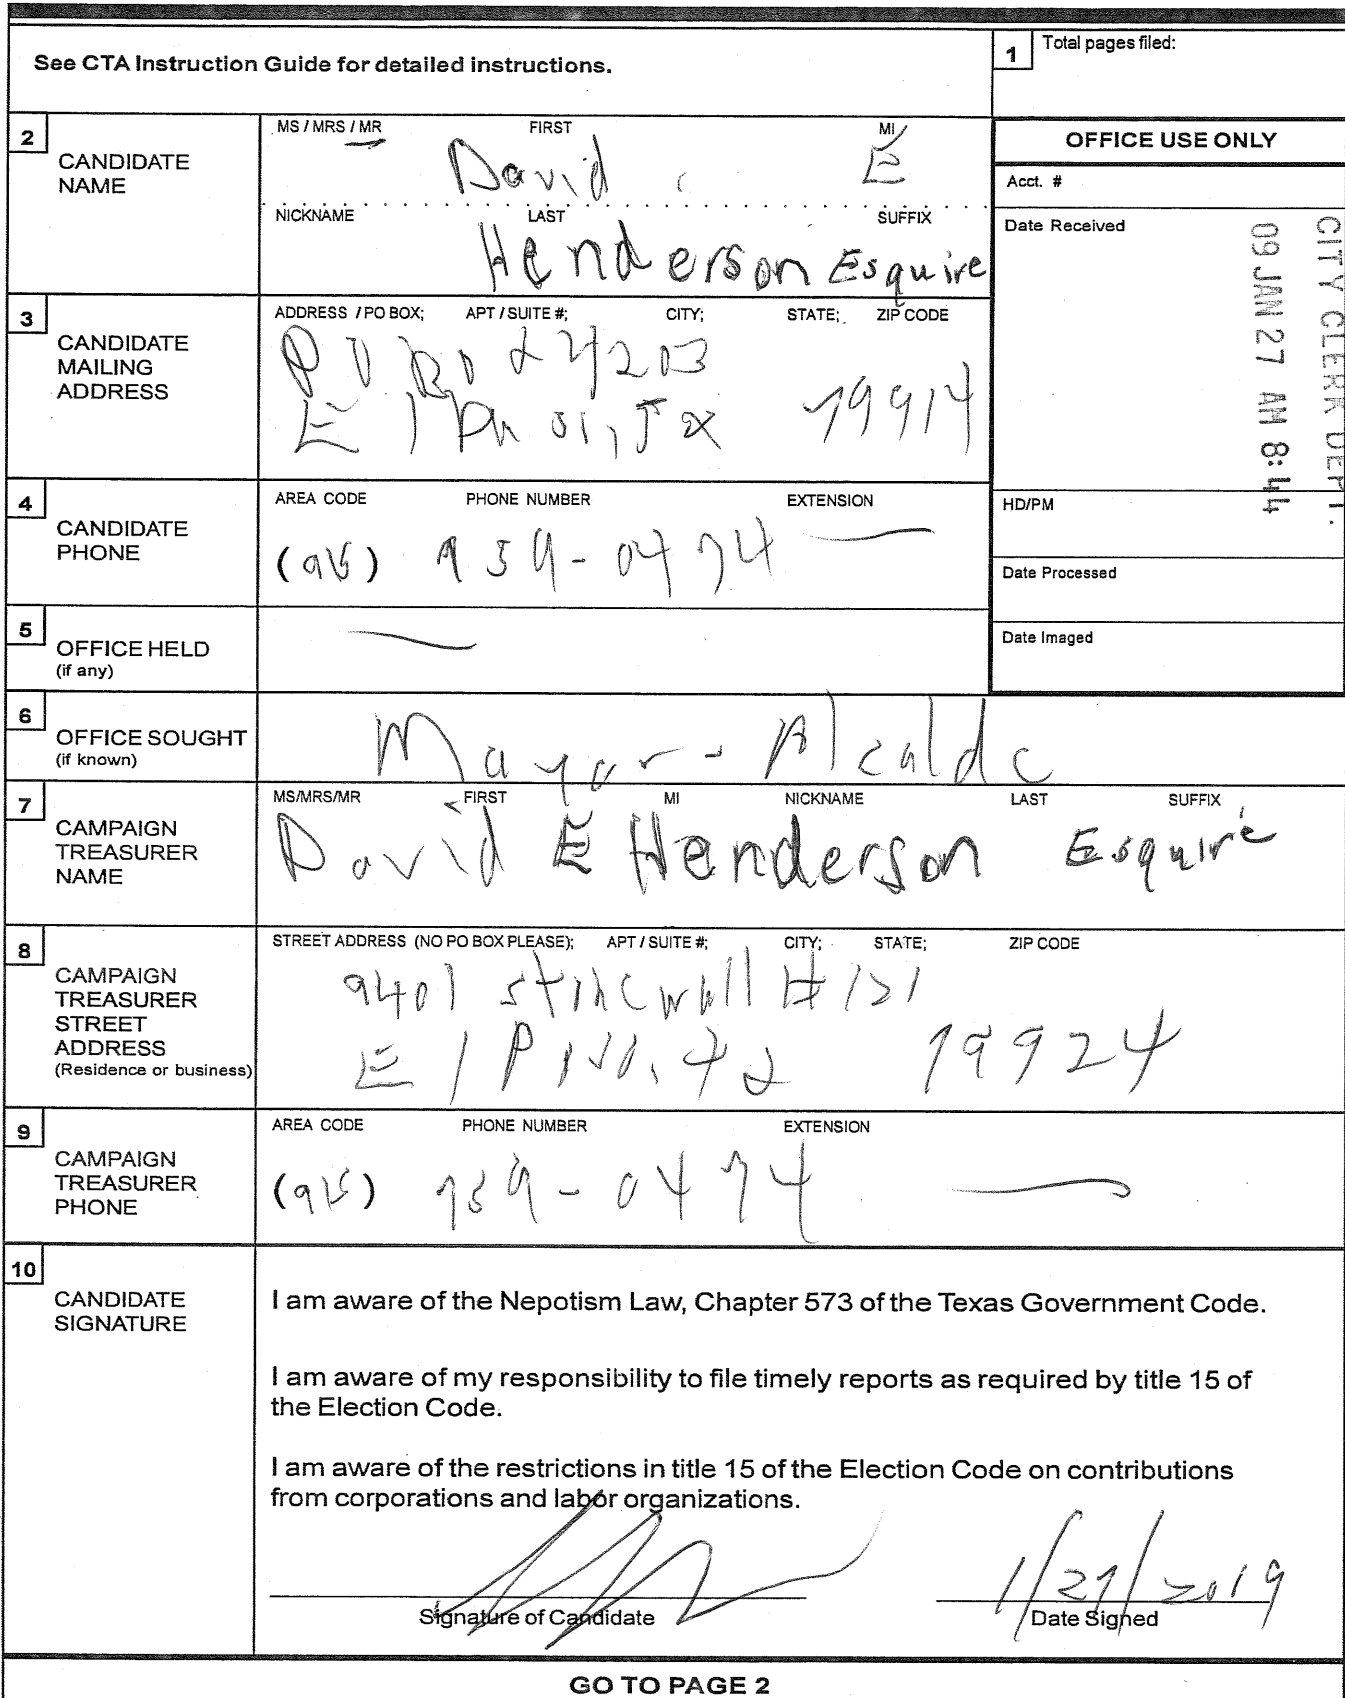 See CTA Instruction Guide for detailed instructions.
1 Total pages filed:
2 CANDIDATE NAME
MS / MRS / MR FIRST MI
David E
NICKNAME LAST SUFFIX
Henderson Esquire
OFFICE USE ONLY
Acct. #
Date Received
CITY CLERK DEPT.
09 JAN 27 AM 8:44
HD/PM
Date Processed
Date Imaged
3 CANDIDATE MAILING ADDRESS
ADDRESS / PO BOX; APT / SUITE #; CITY; STATE; ZIP CODE
P O
El Tx 79914
4 CANDIDATE PHONE
AREA CODE PHONE NUMBER EXTENSION
(915) 959-0474 —
5 OFFICE HELD
(if any)
—
6 OFFICE SOUGHT
(if known)
Mayor - Alcalde
7 CAMPAIGN TREASURER NAME
MS/MRS/MR FIRST MI NICKNAME LAST SUFFIX
David E Henderson Esquire
8 CAMPAIGN TREASURER STREET ADDRESS
(Residence or business)
STREET ADDRESS (NO PO BOX PLEASE); APT / SUITE #; CITY; STATE; ZIP CODE
9401 #121
El 79924
9 CAMPAIGN TREASURER PHONE
AREA CODE PHONE NUMBER EXTENSION
(915) -0474 —
10 CANDIDATE SIGNATURE
I am aware of the Nepotism Law, Chapter 573 of the Texas Government Code.
I am aware of my responsibility to file timely reports as required by title 15 of
the Election Code.
I am aware of the restrictions in title 15 of the Election Code on contributions
from corporations and labor organizations.
1/27/2019
Signature of Candidate Date Signed
GO TO PAGE 2